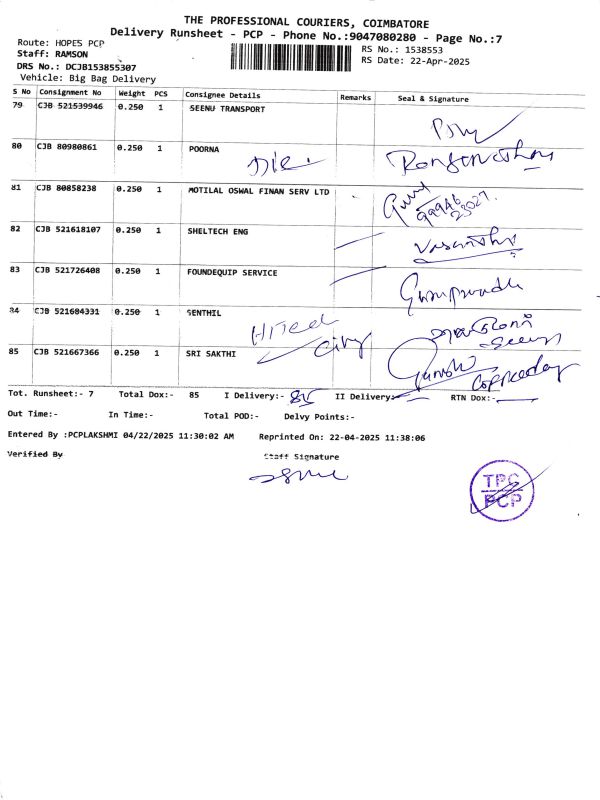 THE PROFESSIONAL COURIERS, COIMBATORE
Delivery Runsheet - PCP - Phone No.:9047080280 - Page No.:7
Route: HOPES PCP
RS No.: 1538553
Staff: RAMSON
RS Date: 22-Apr-2025
DRS No.: DCJB153855307
Vehicle: Big Bag Delivery
S No Consignment No Weight PCS Consignee Details Remarks Seal & Signature
79 CJB 521539946 0.250 1 SEENU TRANSPORT
80 CJB 80980861 0.250 1 POORNA
81 CJB 80858238 0.250 1 MOTILAL OSWAL FINAN SERV LTD
99946
23027.
82 CJB 521618107 0.250 1 SHELTECH ENG Vasantha
83 CJB 521726408 0.250 1 FOUNDEQUIP SERVICE
84 CJB 521604331 0.250 1 SENTHIL
City
85 CJB 521667366 0.250 1 SRI SAKTHI Ganesh
Tot. Runsheet:- 7 Total Dox:- 85 I Delivery:- 85 II Delivery:- RTN Dox:-
Out Time:- In Time:- Total POD:- Delvy Points:-
Entered By :PCPLAKSHMI 04/22/2025 11:30:02 AM Reprinted On: 22-04-2025 11:38:06
Verified By Staff Signature
TPC
PCP